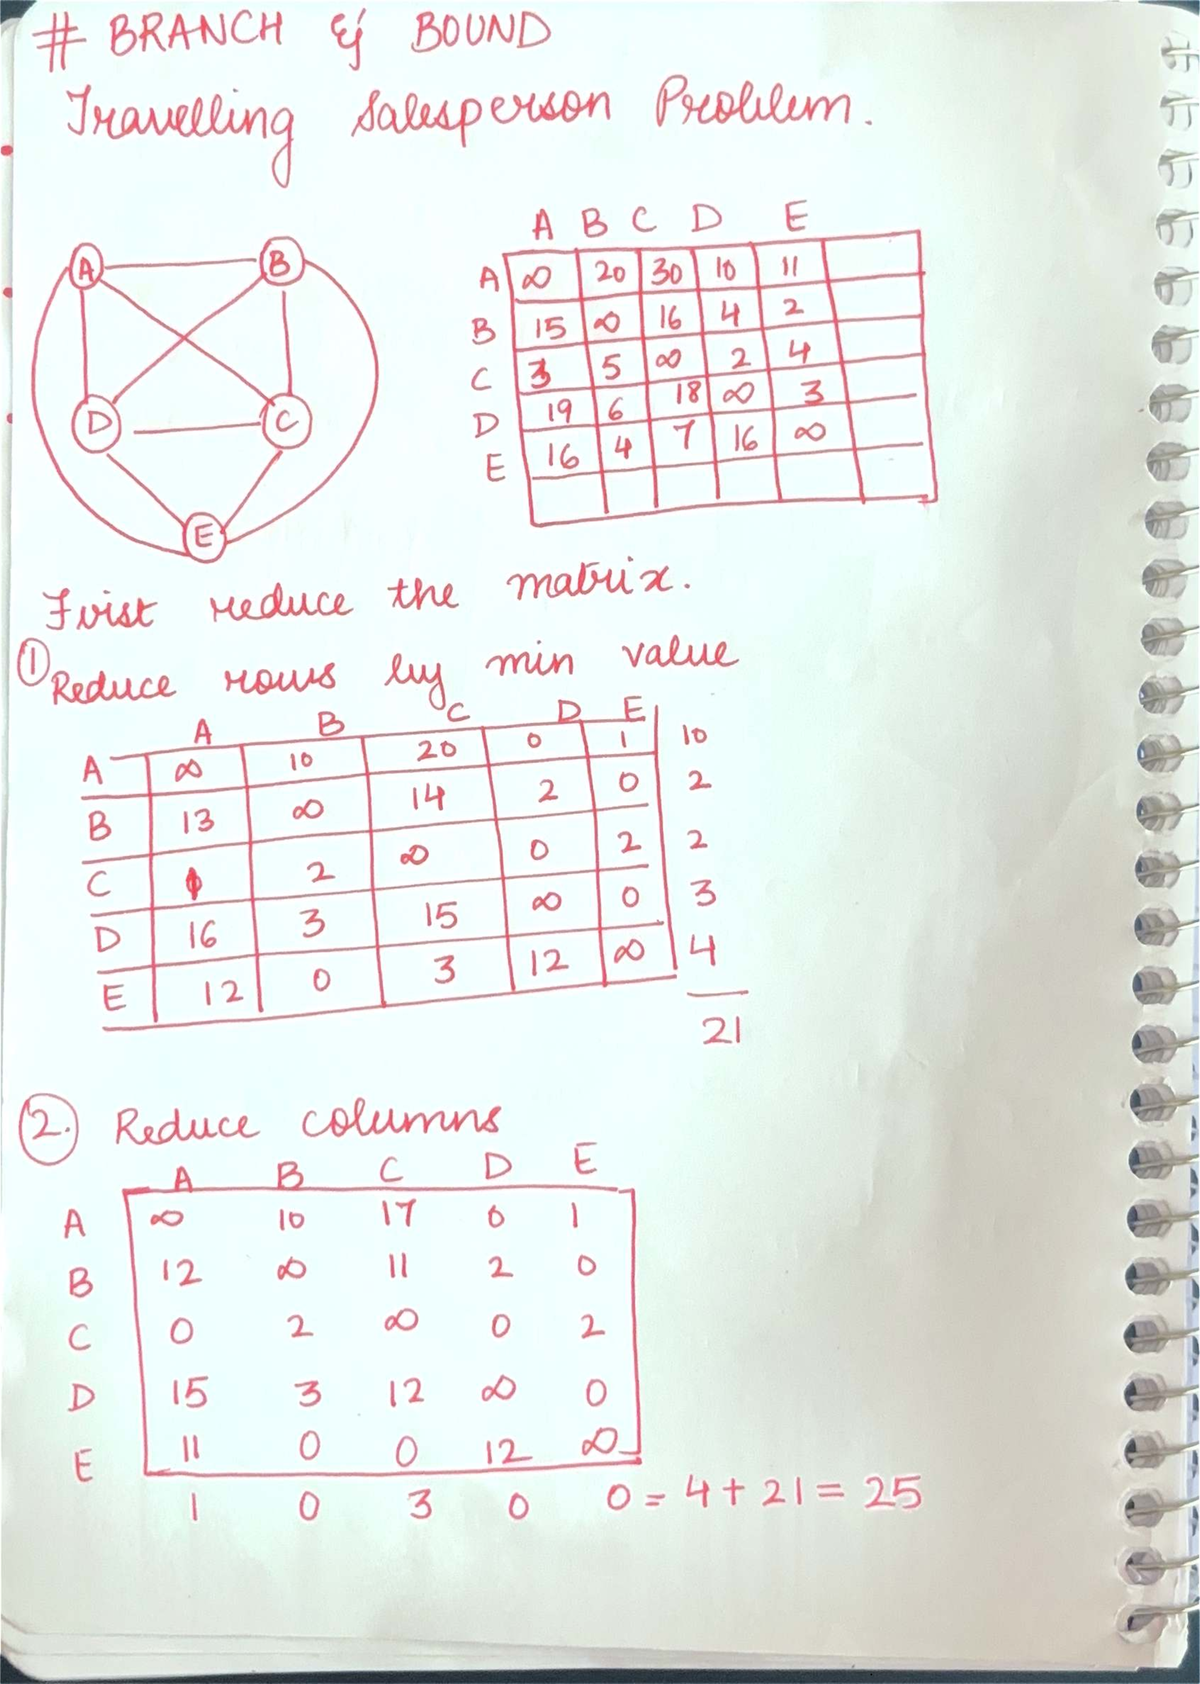 # BRANCH & BOUND
Travelling Salesperson Problem.
A B C D E
A ∞ 20 30 10 11
B 15 ∞ 16 4 2
C 3 5 ∞ 2 4
D 19 6 18 ∞ 3
E 16 4 7 16 ∞
A B
D C
E
First reduce the matrix.
① Reduce rows by min value
A B C D E
A ∞ 10 20 0 1 10
B 13 ∞ 14 2 0 2
C 2 ∞ 0 2 2
D 16 3 15 ∞ 0 3
E 12 0 3 12 ∞ 4
21
2. Reduce columns
A B C D E
A ∞ 10 17 0 1
B 12 ∞ 11 2 0
C 0 2 ∞ 0 2
D 15 3 12 ∞ 0
E 11 0 0 12 ∞
1 0 3 0 0 = 4 + 21 = 25